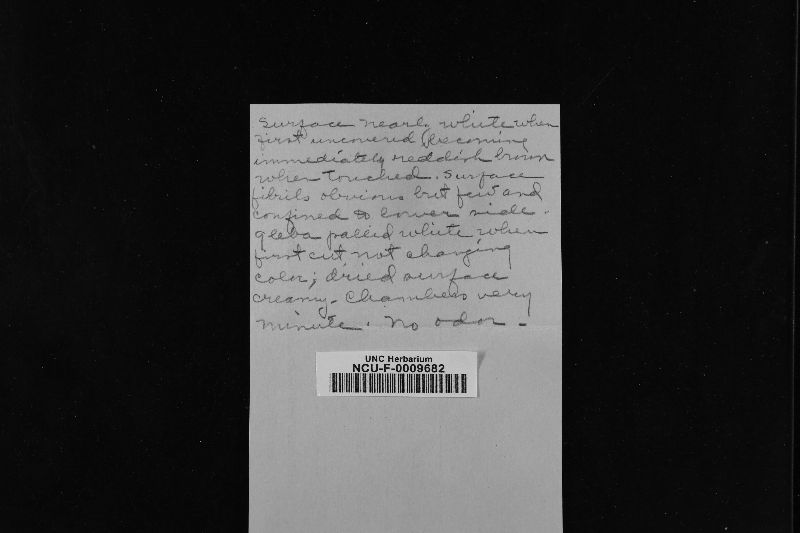 Surface nearly white when
first uncovered becoming
immediately reddish brown
when touched. Surface
fibrils obvious but few and
confined to lower side.
gleba pallid white when
first cut not changing
color; dried surface
creamy. Chambers very
minute. No odor.
UNC Herbarium
NCU-F-0009682